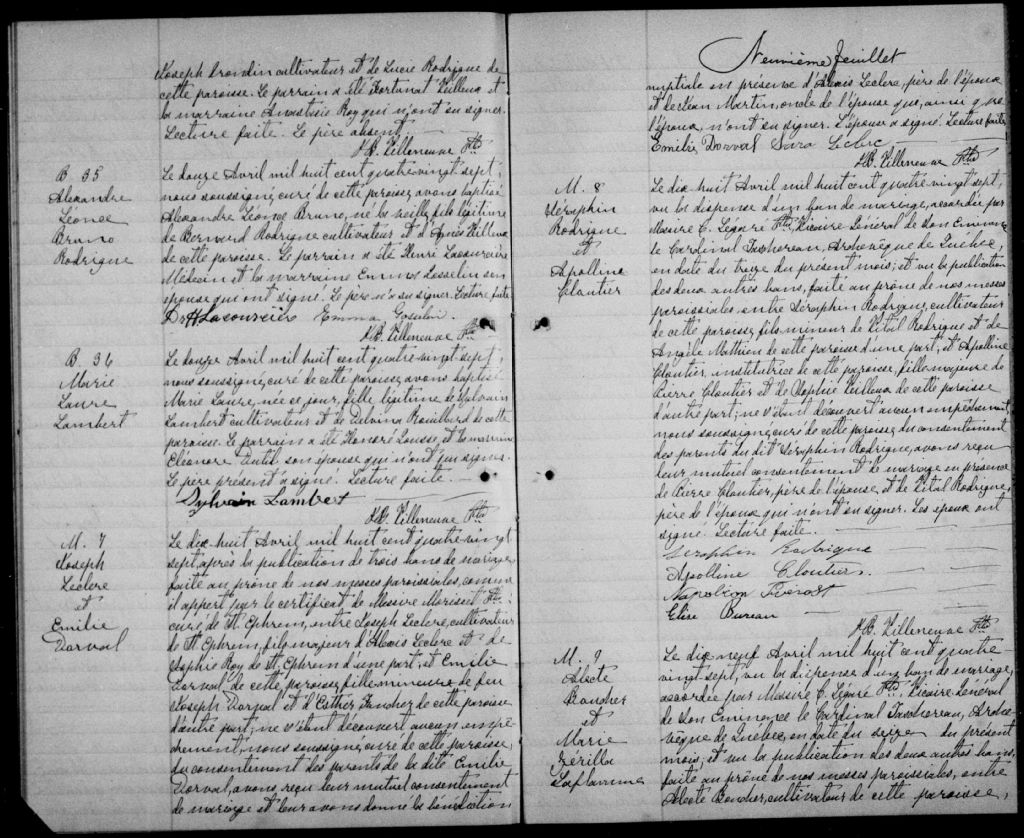 Joseph Grondin cultivateur et de Lucie Rodrigue de
cette paroisse. Le parrain a été Fortunat Veilleux et
la marraine Anastasie Roy qui n'ont su signer.
Lecture faite. Le père absent.
J.B. Villeneuve Ptre
B. 35
Alexandre
Léonce
Bruno
Rodrigue
Le douze Avril mil huit cent quatre-vingt sept,
nous soussigné, curé de cette paroisse avons baptisé
Alexandre Léonce Bruno, né la veille, fils légitime
de Bernard Rodrigue cultivateur et d'Agnès Veilleux
de cette paroisse. Le parrain a été Henri Lacourcière
Médecin et la marraine Emma Gosselin son
épouse qui ont signé. Le père n'a su signer. Lecture faite
Dr H Lacourcière Emma Gosselin.
J.B. Villeneuve Ptre
B. 36
Marie
Laure
Lambert
Le douze Avril mil huit cent quatre-vingt sept,
nous soussigné, curé de cette paroisse, avons baptisé
Marie Laure, née ce jour, fille légitime de Sylvain
Lambert cultivateur et de Delvina Rouillard de cette
paroisse. Le parrain a été Honoré Lousse, et la marraine
Eléonore son épouse qui n'ont pu signer.
Le père présent a signé. Lecture faite.
Sylvain Lambert
J.B. Villeneuve Ptre
M. 7
Joseph
Leclerc
et
Emilie
Dorval
Le dix-huit Avril mil huit cent quatre-vingt
sept, après la publication de trois bans de mariage
faite au prône de nos messes paroissiales, comme
il appert par le certificat de Messire Morisset Ptre
curé de St. Ephrem, entre Joseph Leclerc, cultivateur
de St. Ephrem, fils majeur d'Alexis Leclerc et de
Sophie Roy de St. Ephrem d'une part, et Emilie
Dorval, de cette paroisse, fille mineure de feu
Joseph Dorval et d'Esther Fauchez de cette paroisse
d'autre part; ne s'étant découvert aucun empê-
chement, nous soussigné, curé de cette paroisse
du consentement des parents de la dite Emilie
Dorval, avons reçu leur mutuel consentement
de mariage et leur avons donné la bénédiction
Neuvième feuillet
nuptiale en présence d'Alexis Leclerc, père de l'époux
et de Martin, oncle de l'épouse qui, ainsi que
l'époux, n'ont su signer. L'épouse a signé. Lecture faite
Emilie Dorval Sara Leclerc
J.B. Villeneuve Ptre
M. 8
Séraphin
Rodrigue
et
Apolline
Cloutier
Le dix-huit Avril mil huit cent quatre-vingt sept,
vu la dispense d'un ban de mariage, accordée par
Messire C. Légaré Ptre, Vicaire Général de Son Eminence
le Cardinal Taschereau, Archevêque de Québec,
en date du treize du présent mois; et vu la publication
des deux autres bans, faite au prône de nos messes
paroissiales, entre Séraphin Rodrigue, cultivateur
de cette paroisse, fils mineur de Vital Rodrigue et de
Angèle Mathieu de cette paroisse d'une part, et Apolline
Cloutier, institutrice de cette paroisse, fille majeure de
Pierre Cloutier et de Sophie Veilleux de cette paroisse
d'autre part; ne s'étant découvert aucun empêchement,
nous soussigné, curé de cette paroisse, du consentement
des parents du dit Séraphin Rodrigue, avons reçu
leur mutuel consentement de mariage en présence
de Pierre Cloutier, père de l'épouse, et de Vital Rodrigue,
père de l'époux qui n'ont su signer. Les époux ont
signé. Lecture faite.
Séraphin Rodrigue
Apolline Cloutier
Napoléon
Elise Bureau
J.B. Villeneuve Ptre
M. 9
Alecte
Boucher
et
Marie
Zérilla
Laflamme
Le dix-neuf Avril mil huit cent quatre-
vingt sept, vu la dispense d'un ban de mariage,
accordée par Messire C. Légaré Ptre, Vicaire Général
de Son Eminence le Cardinal Taschereau, Arche-
vêque de Québec, en date du seize du présent
mois, et vu la publication des deux autres bans,
faite au prône de nos messes paroissiales, entre
Alecte Boucher, cultivateur de cette paroisse,